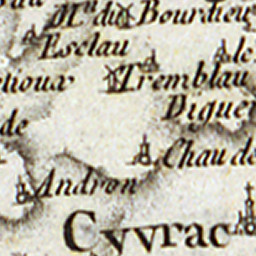 M.ⁿ du Bourdieu
Esclau
Tremblau
Digue
de
Chau de
Andron
Cyvrac